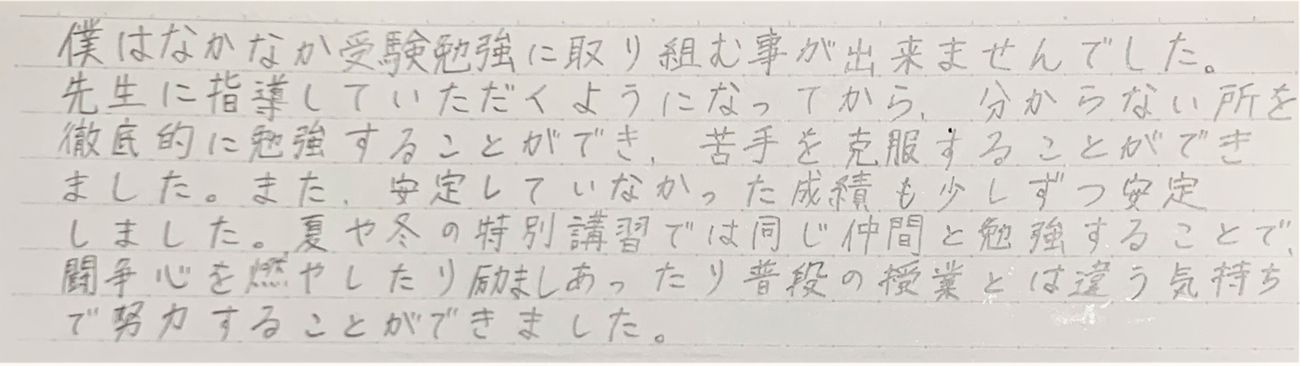 僕はなかなか受験勉強に取り組む事が出来ませんでした。
先生に指導していただくようになってから、分からない所を
徹底的に勉強することができ、苦手を克服することができ
ました。また、安定していなかった成績も少しずつ安定
しました。夏や冬の特別講習では同じ仲間と勉強することで、
闘争心を燃やしたり励ましあったり普段の授業とは違う気持ち
で努力することができました。